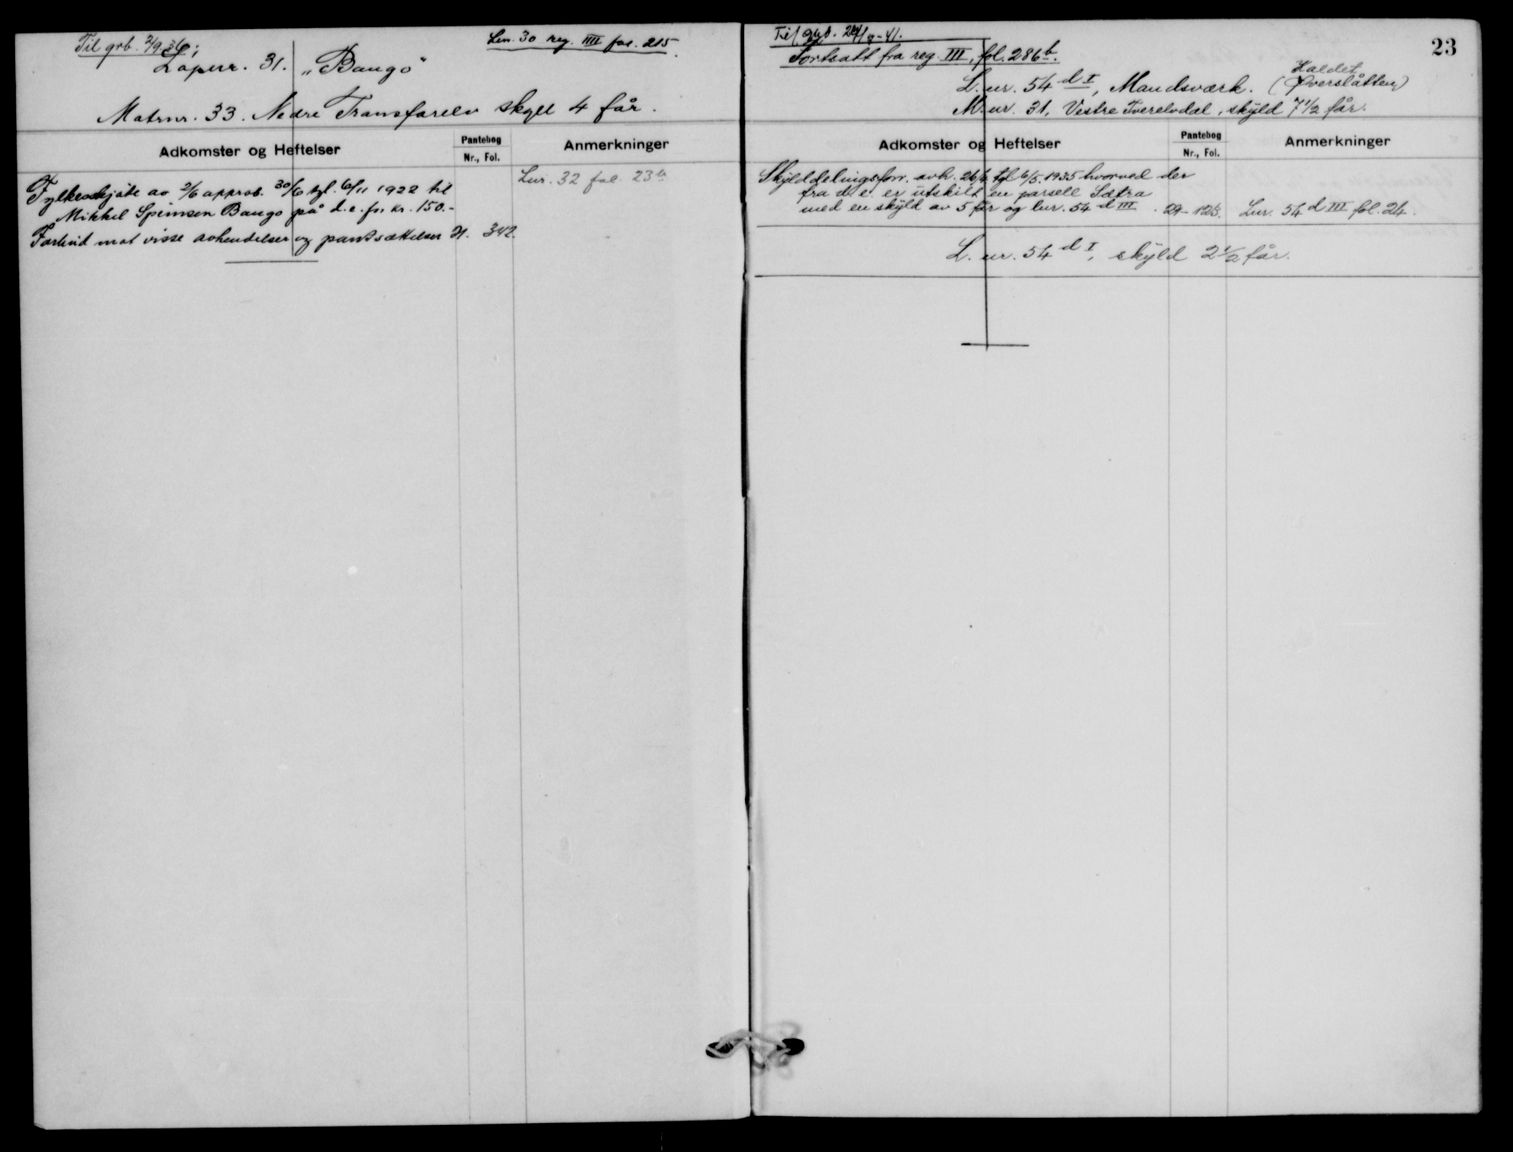 Til grb. 2/9 36;
Lnr. 30 reg. IIII fol. 215.
Løpenr. 31. „Bango"
Matrnr. 33. Nedre Transfarelv skyld 4 får.
Adkomster og Heftelser
Pantebog
Nr., Fol.
Anmerkninger
Lnr. 32 fol. 23b
Fylkesskjøte av 2/6 approb. 30/6 tgl. 6/11 1922 til
Mikkel Speinsen Bango på d.e. for kr. 150.-
Forbud mot visse avhendelser og pantsættelser 21. 342.
Til grb. 29/8-41.
23
Fortsatt fra reg. III, fol. 286b.
L. nr. 54 d I, Mandsværk. (Øverslåtten)
Kaldet
M. nr. 31, Vestre Tverelvdal, skyld 7 1/2 får.
Adkomster og Heftelser
Pantebog
Nr., Fol.
Anmerkninger
Skylddelingsforr. avh. 26/4 tgl. 6/5 1935 hvorved der
fra d.e. er utskilt en parsell Sætra
med en skyld av 5 får og lnr. 54 d III. 29 - 126. Lnr. 54 d III fol. 24.
L. nr. 54 d I, skyld 2 1/2 får.